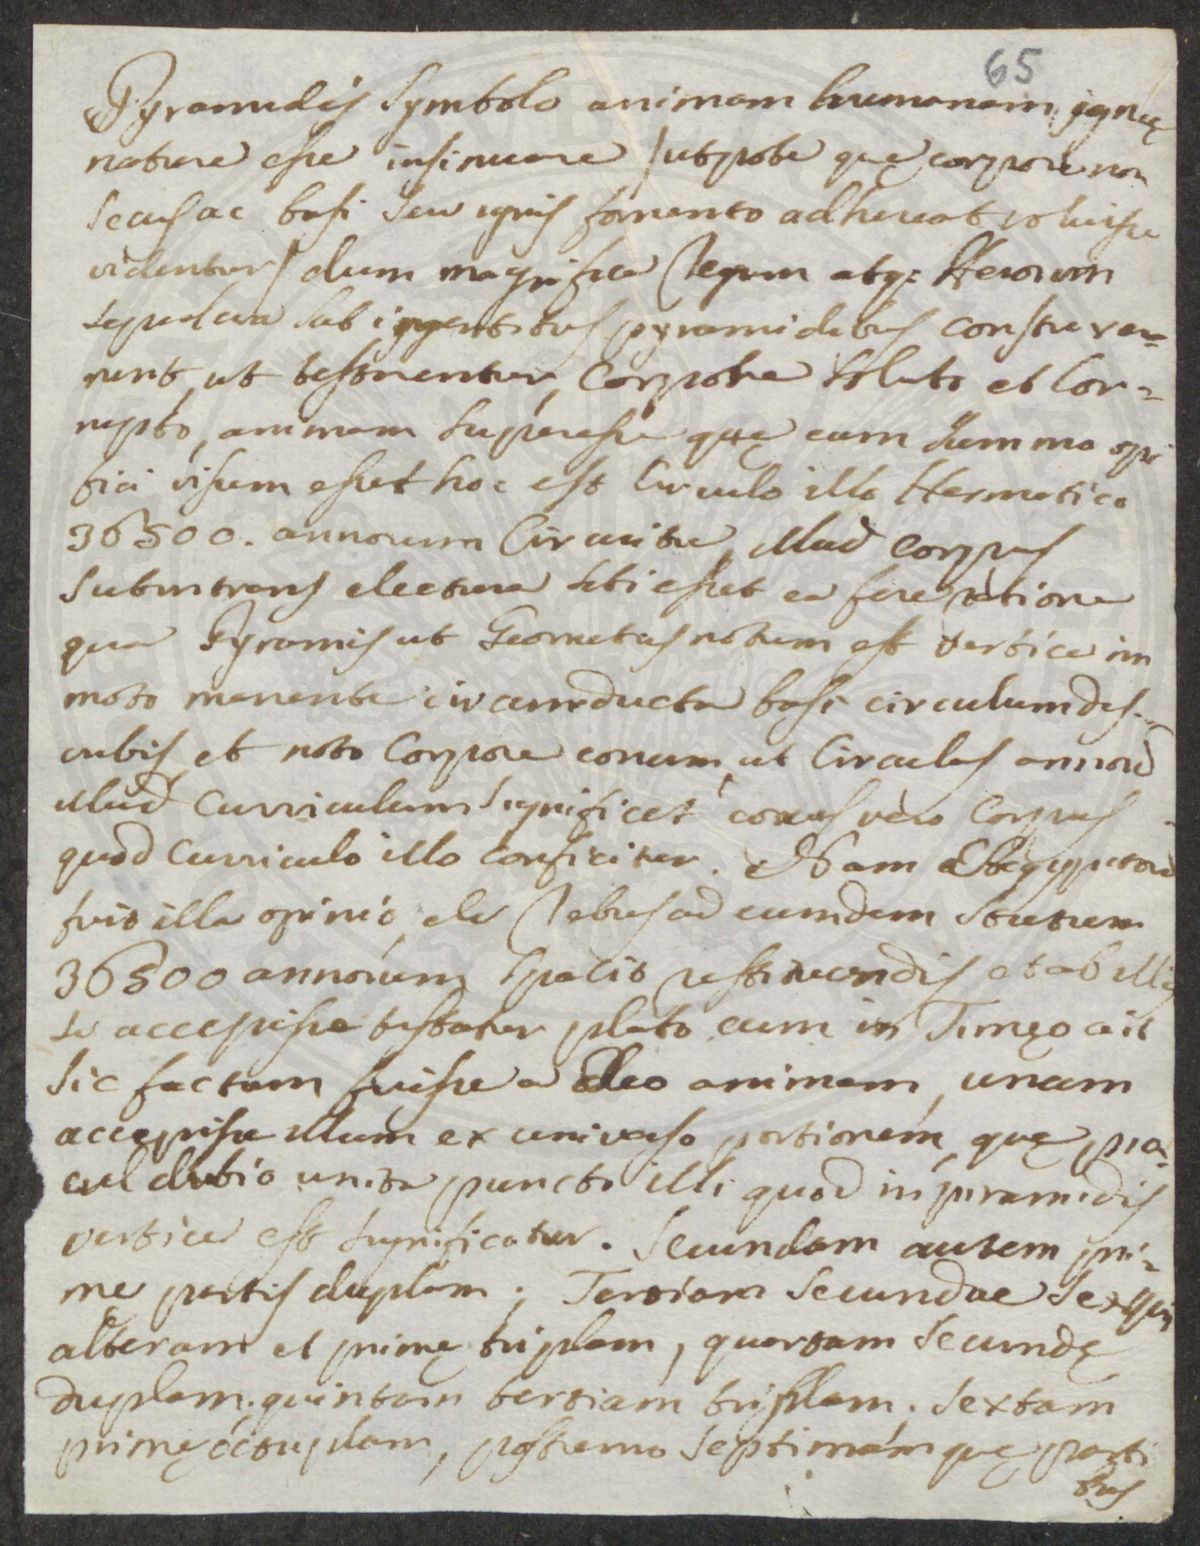 65
Pyramidis Symbolo animam humanam ignę
nature esse insinuare /utpote quę corpore non
secus ac basi seu ignis fomento adhereat voluisse
videntur/ dum magnifica Regum atq: Heroum
sepulcra sub ingentibus pyramidibus construxe=
runt, ut testarentur, Corpore soluto et Cor=
rupto, animam superesse quę cum summo opi
fici visum esset hoc est Circulo illo Hermetico
36500. annorum Circuitu, illud Corpus
subintrans electura sibi esset ea fere ratione
qua Pyramis ut Geometris notum est vertice im
moto manente circumducta basi circulum des=
cribis, et noto Corpore conum, ut Circulus annorū
illud Curriculum significet conus vero Corpus
quod Curriculo illo conficitur. Nam Aegyptiorū
fuit illa opinio, de Rebus ad eumdem statum
36500 annorum spatio restituendis et ab illis
se accepisse testatur plato cum in Timęo ait
sic factam fuisse a Deo animam, unam
accepisse illum ex universo portionem, quę pro=
cul dubio unita puncto illi quod in piramidis
vertice est significatur. Secundam autem pri=
me partis duplam; Tertiam secundae sexqui
alteram et primę triplam, quartam secundę
duplam. quintam tertiam triplam. sextam
primę óctuplam, postremo septimam quę parti
bus